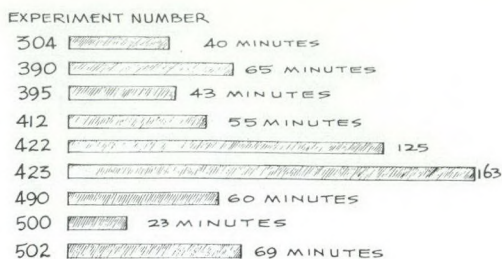 EXPERIMENT NUMBER
304 40 MINUTES
390 65 MINUTES
395 43 MINUTES
412 55 MINUTES
422 125
423 163
490 60 MINUTES
500 23 MINUTES
502 69 MINUTES